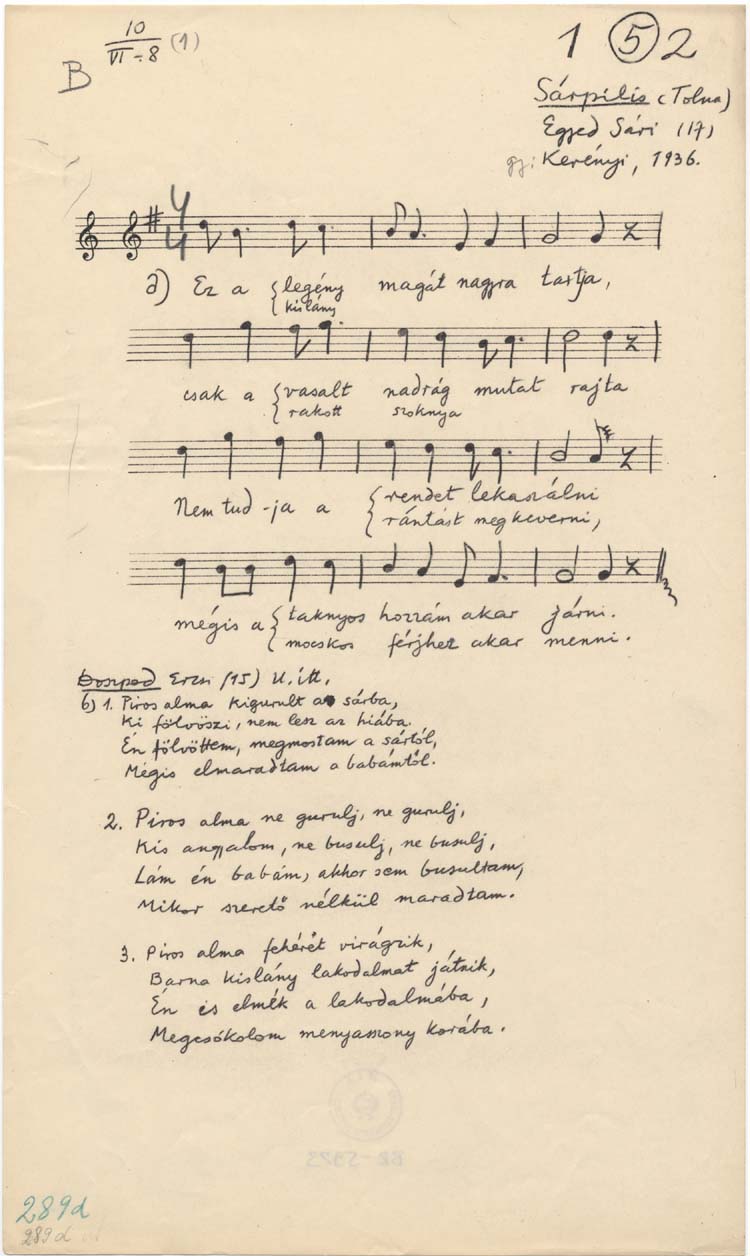 10
VI-8 (1)
B
1 5 2
Sárpilis (Tolna)
Egyed Sári (17)
gy: Kerényi, 1936.
4
4
a) Ez a { legény magát nagyra tartja,
{ kislány
csak a { vasalt nadrág mutat rajta
{ rakott szoknya
Nem tud-ja a { rendet lekaszálni
{ rántást megkeverni,
mégis a { taknyos hozzám akar járni.
{ mocskos férjhez akar menni.
Doszpod Erzsi (15) U. itt.
b) 1. Piros alma kigurult a sárba,
Ki fölvöszi, nem lesz az hiába.
Én fölvöttem, megmostam a sártól,
Mégis elmaradtam a babámtól.
2. Piros alma ne gurulj, ne gurulj,
Kis angyalom, ne busulj, ne busulj,
Lám én babám, akkor sem busultam,
Mikor szerető nélkül maradtam.
3. Piros alma fehérét virágzik,
Barna kislány lakodalmat játsik,
Én is elmék a lakodalmába,
Megcsókolom menyasszony korába.
289d
289d